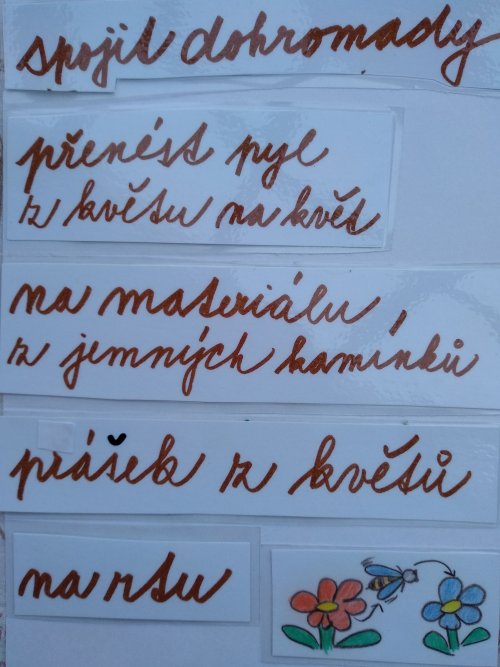 spojil dohromady
přenést pyl
z květu na květ
na materiálu
z jemných kamínků
prášek z květů
na rtu